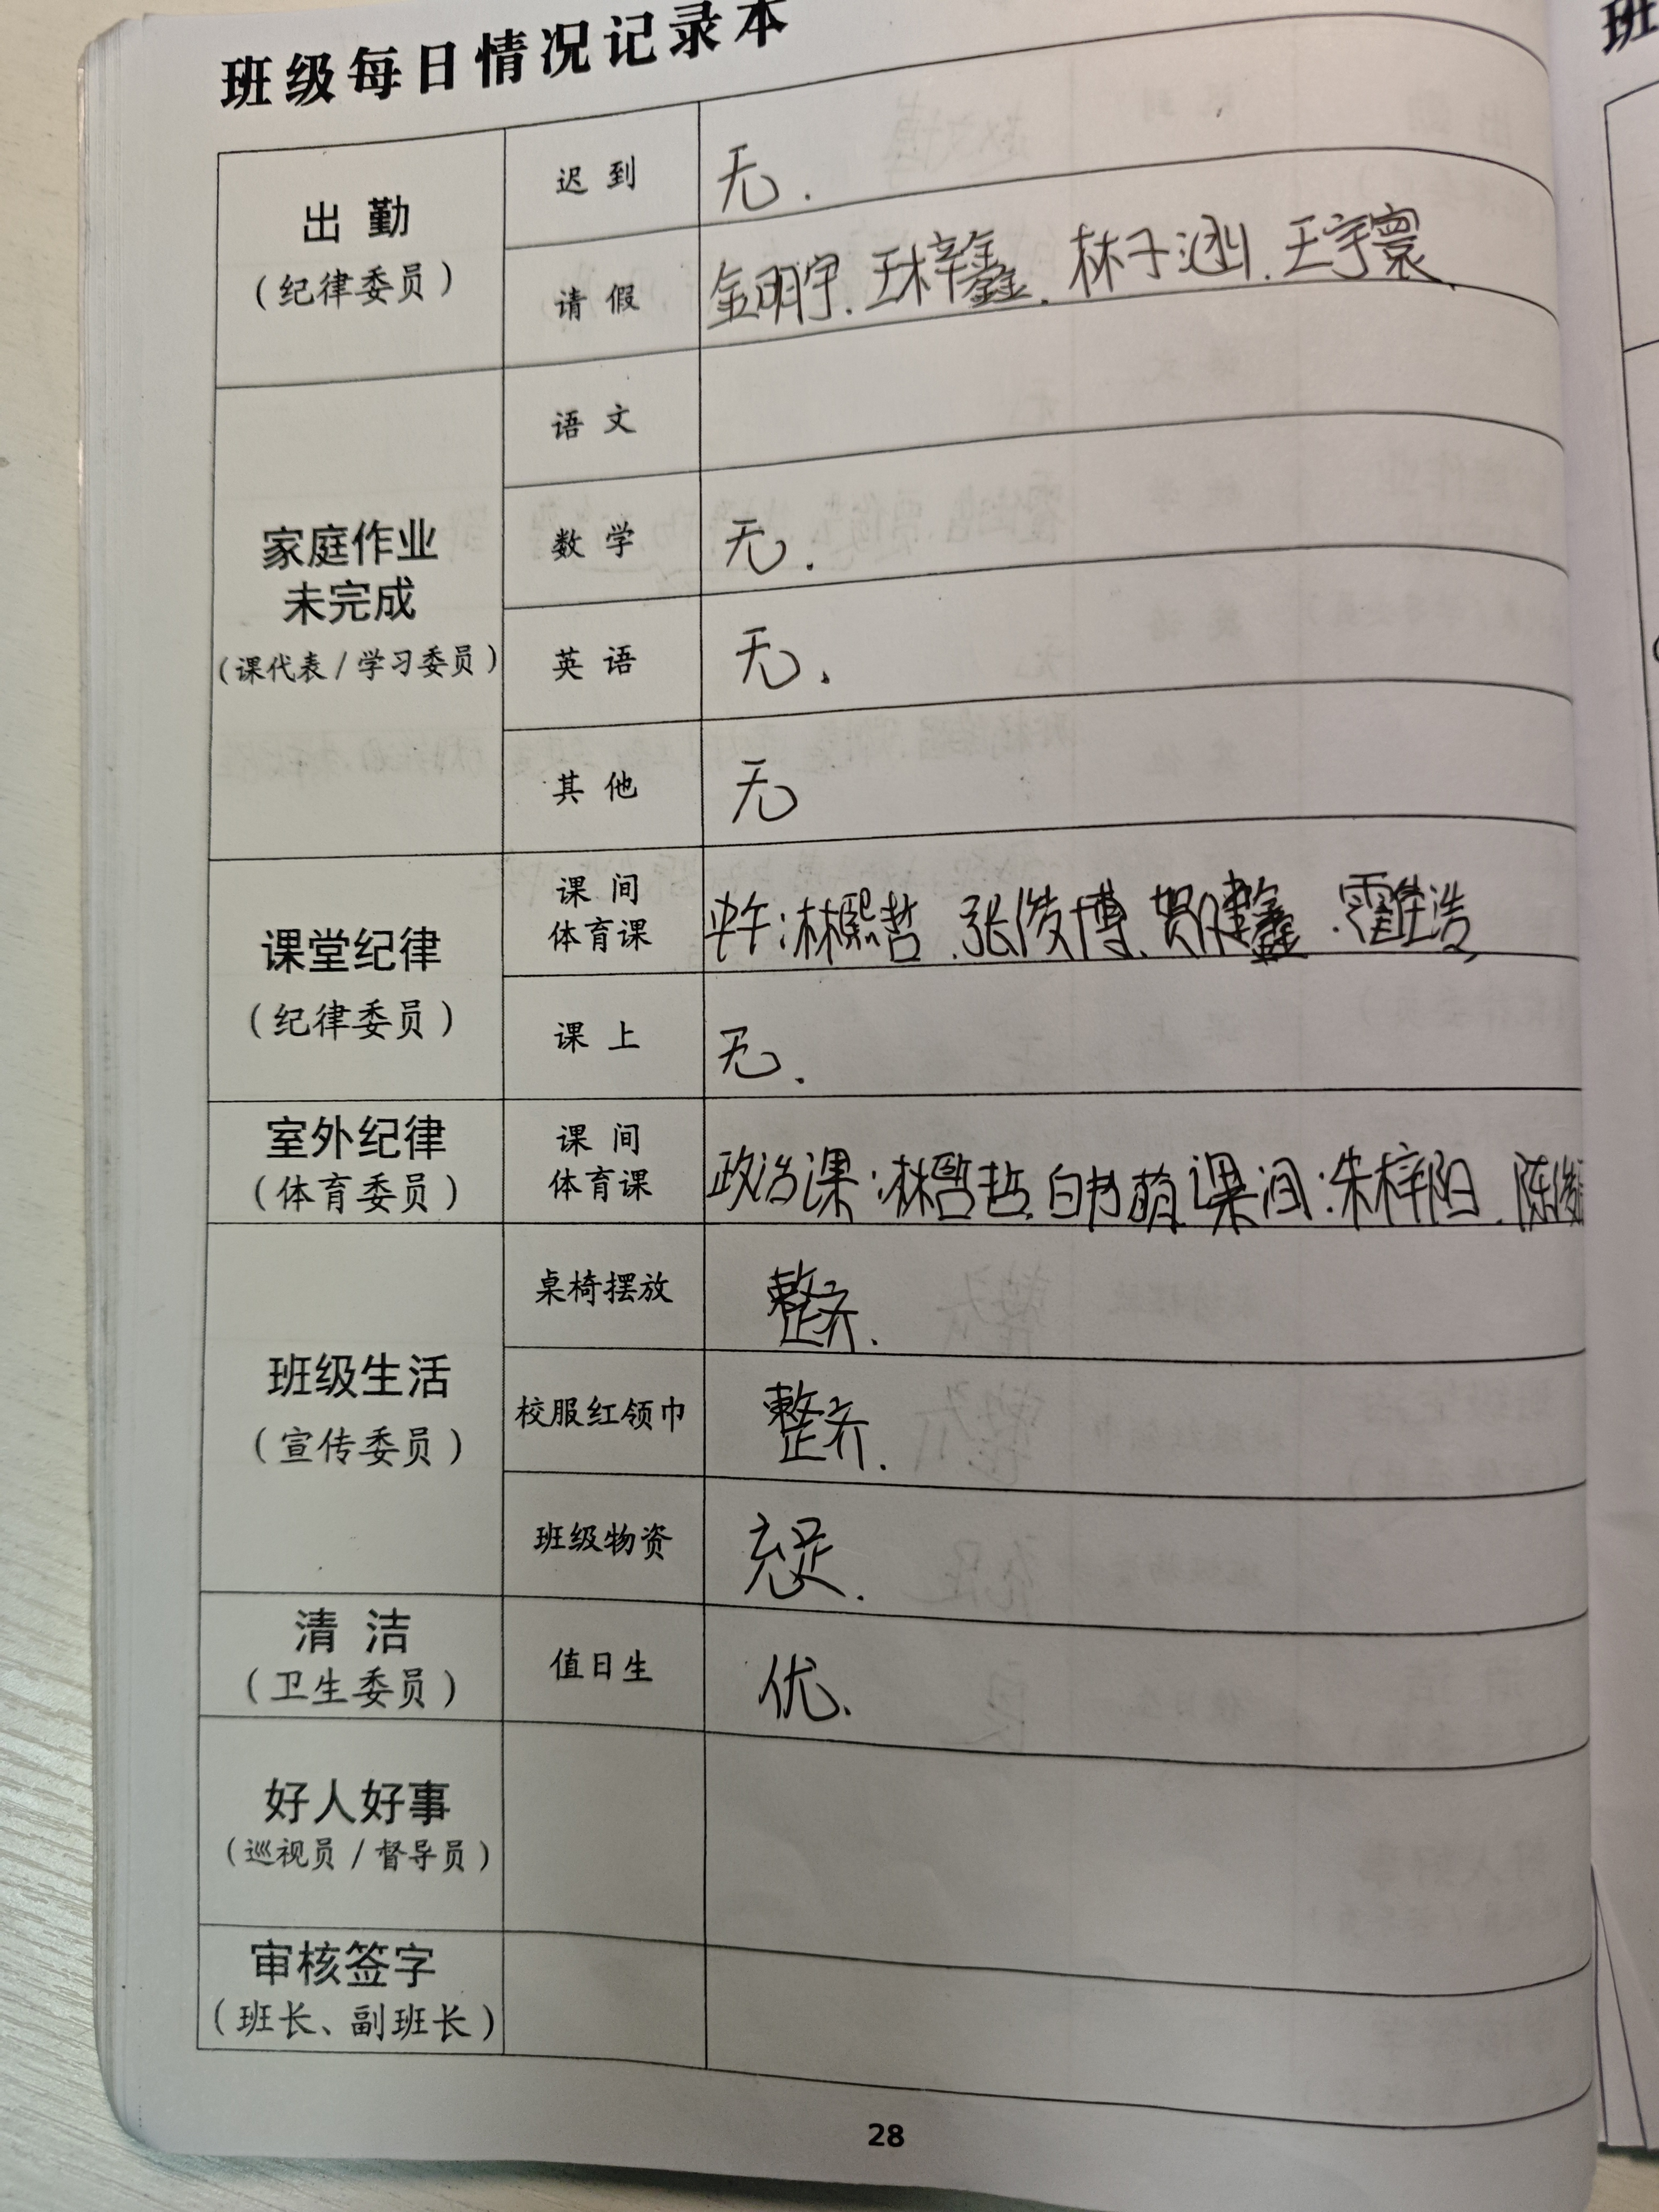 班级每日情况记录本
班
出 勤
(纪律委员)
迟 到
无.
请 假
金明宇.王梓鑫.林子涵.王宇寰.
家庭作业
未完成
(课代表/学习委员)
语 文
数 学
无.
英 语
无.
其 他
无
课堂纪律
(纪律委员)
课 间
体育课
林熙哲.张俊博.贺健鑫.霍佳浩
课 上
无.
室外纪律
(体育委员)
课 间
体育课
政治课:林熙哲.白书萌.课间:朱梓阳.陈俊
班级生活
(宣传委员)
桌椅摆放
整齐.
校服红领巾
整齐.
班级物资
充足.
清 洁
(卫生委员)
值日生
优.
好人好事
(巡视员/督导员)
审核签字
(班长、副班长)
28